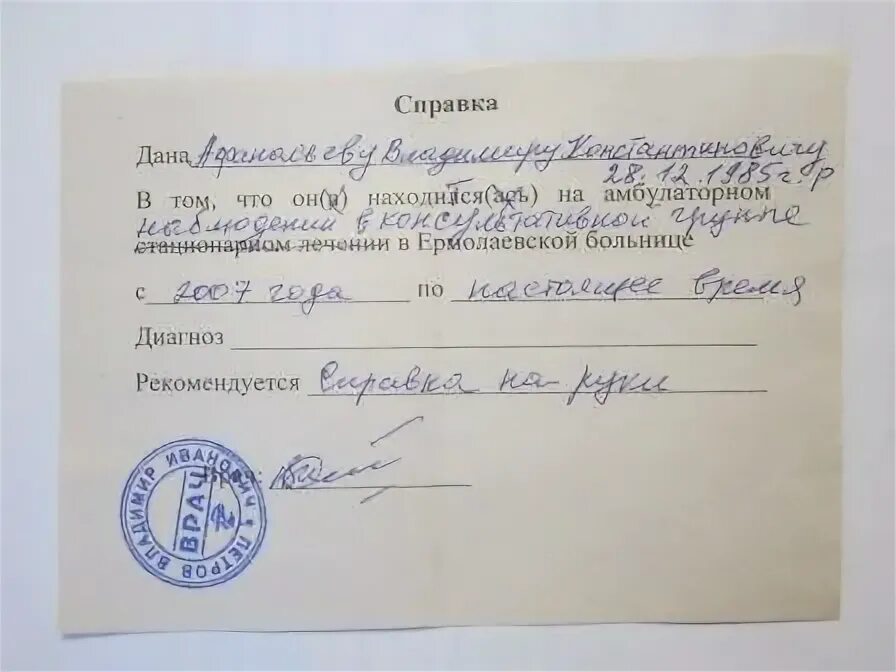 Справка
Дана Афанасьеву Владимиру Константиновичу
28.12.1985г.р
В том, что он(а) находится(ась) на амбулаторном
наблюдении в консультативной группе
стационарном лечении в Ермолаевской больнице
с 2007 года по настоящее время
Диагноз
Рекомендуется Справка на руки
ВЛАДИМИР ИВАНОВИЧ ПЕТРОВ
ВРАЧ